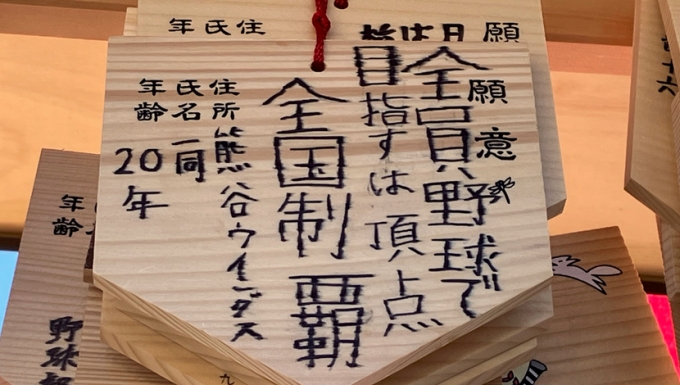 願意
全員野球で
目指すは頂点
全国制覇
住所 熊谷ウインダス
氏名 一同
年齢 20年
願
住
氏
年
年齢
野球